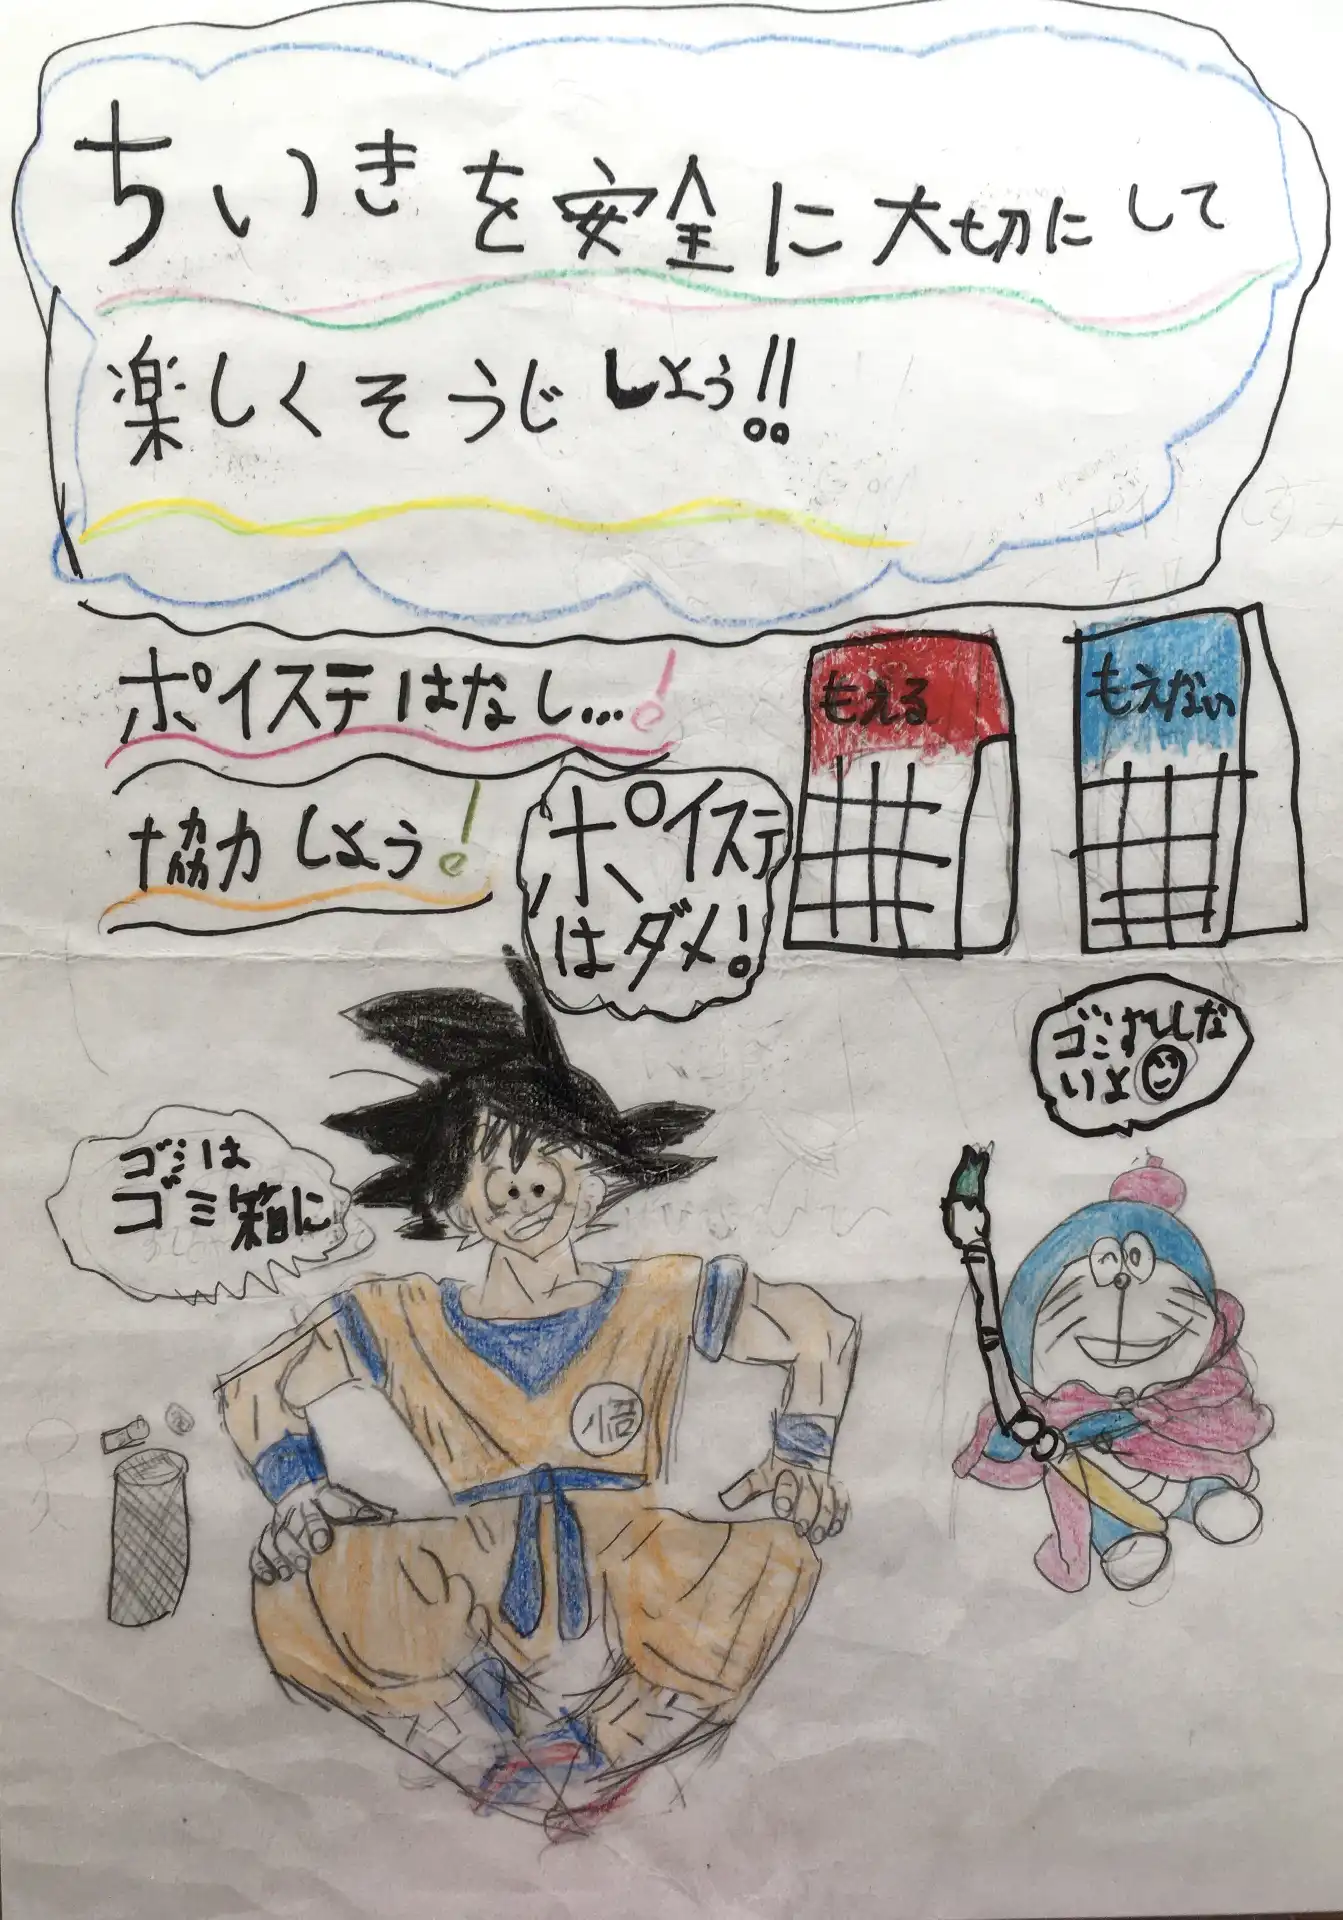 ちいきを安全に大切にして
楽しくそうじしよう!!
ポイステはなし...!
協力しよう!
ポイステ
はダメ!
もえる
もえない
ゴミは
ゴミ箱に
悟
いよ